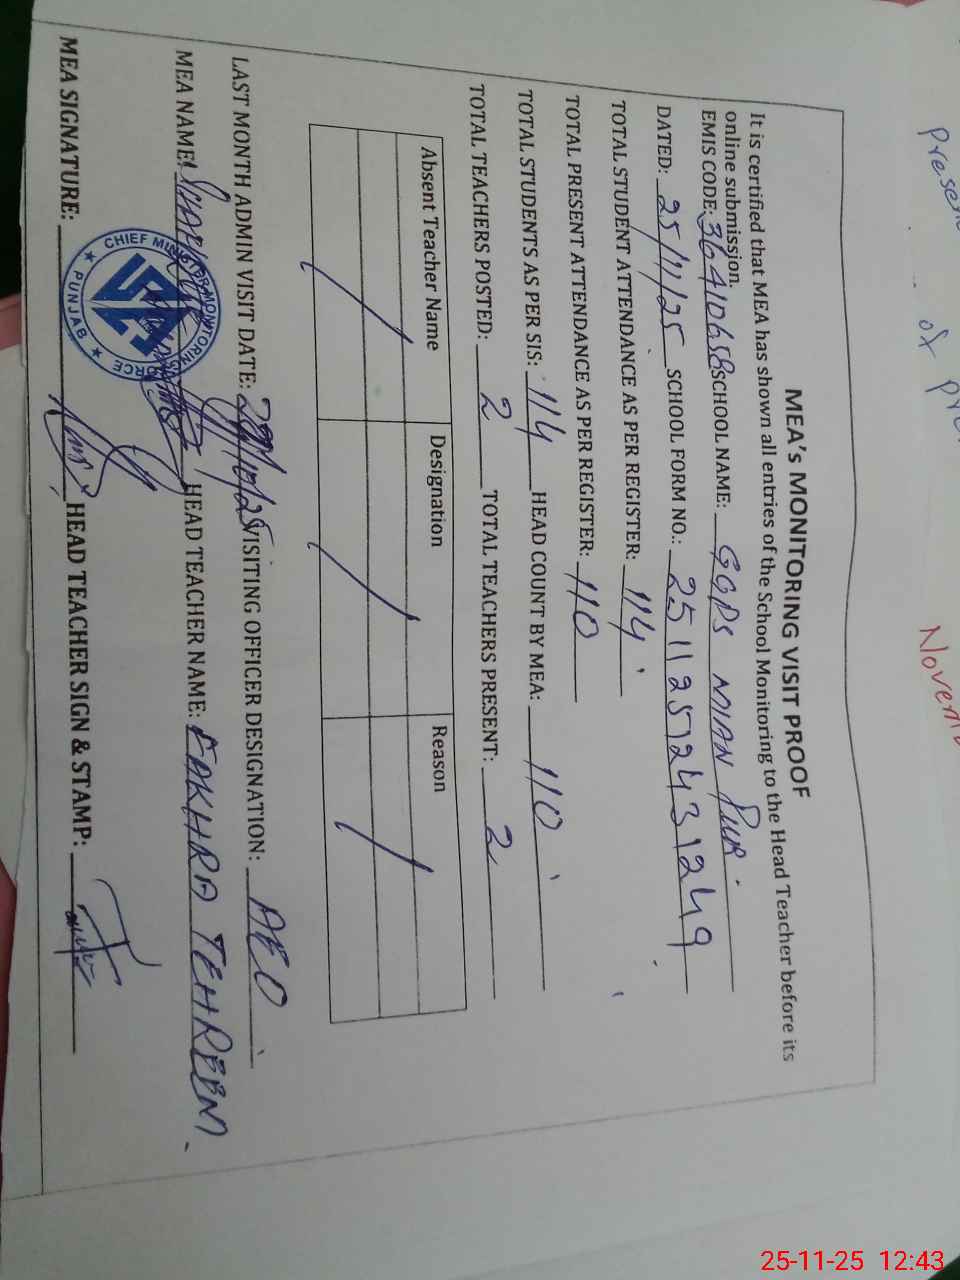 MEA's MONITORING VISIT PROOF
It is certified that MEA has shown all entries of the School Monitoring to the Head Teacher before its
online submission.
EMIS CODE: 36410658 SCHOOL NAME: GGPS MIAN PUR
DATED: 25/11/25 SCHOOL FORM NO.: 2511252431249
TOTAL STUDENT ATTENDANCE AS PER REGISTER: 114
TOTAL PRESENT ATTENDANCE AS PER REGISTER: 110
TOTAL STUDENTS AS PER SIS: 114 HEAD COUNT BY MEA: 110
TOTAL TEACHERS POSTED: 2 TOTAL TEACHERS PRESENT: 2
Absent Teacher Name Designation Reason
LAST MONTH ADMIN VISIT DATE: /10/25 VISITING OFFICER DESIGNATION: AEO
MEA NAME: HEAD TEACHER NAME: FAKHRA TEHREEM
MEA SIGNATURE: HEAD TEACHER SIGN & STAMP:
CHIEF MINISTER MONITORING FORCE
PUNJAB
of
Novemb
25-11-25 12:43